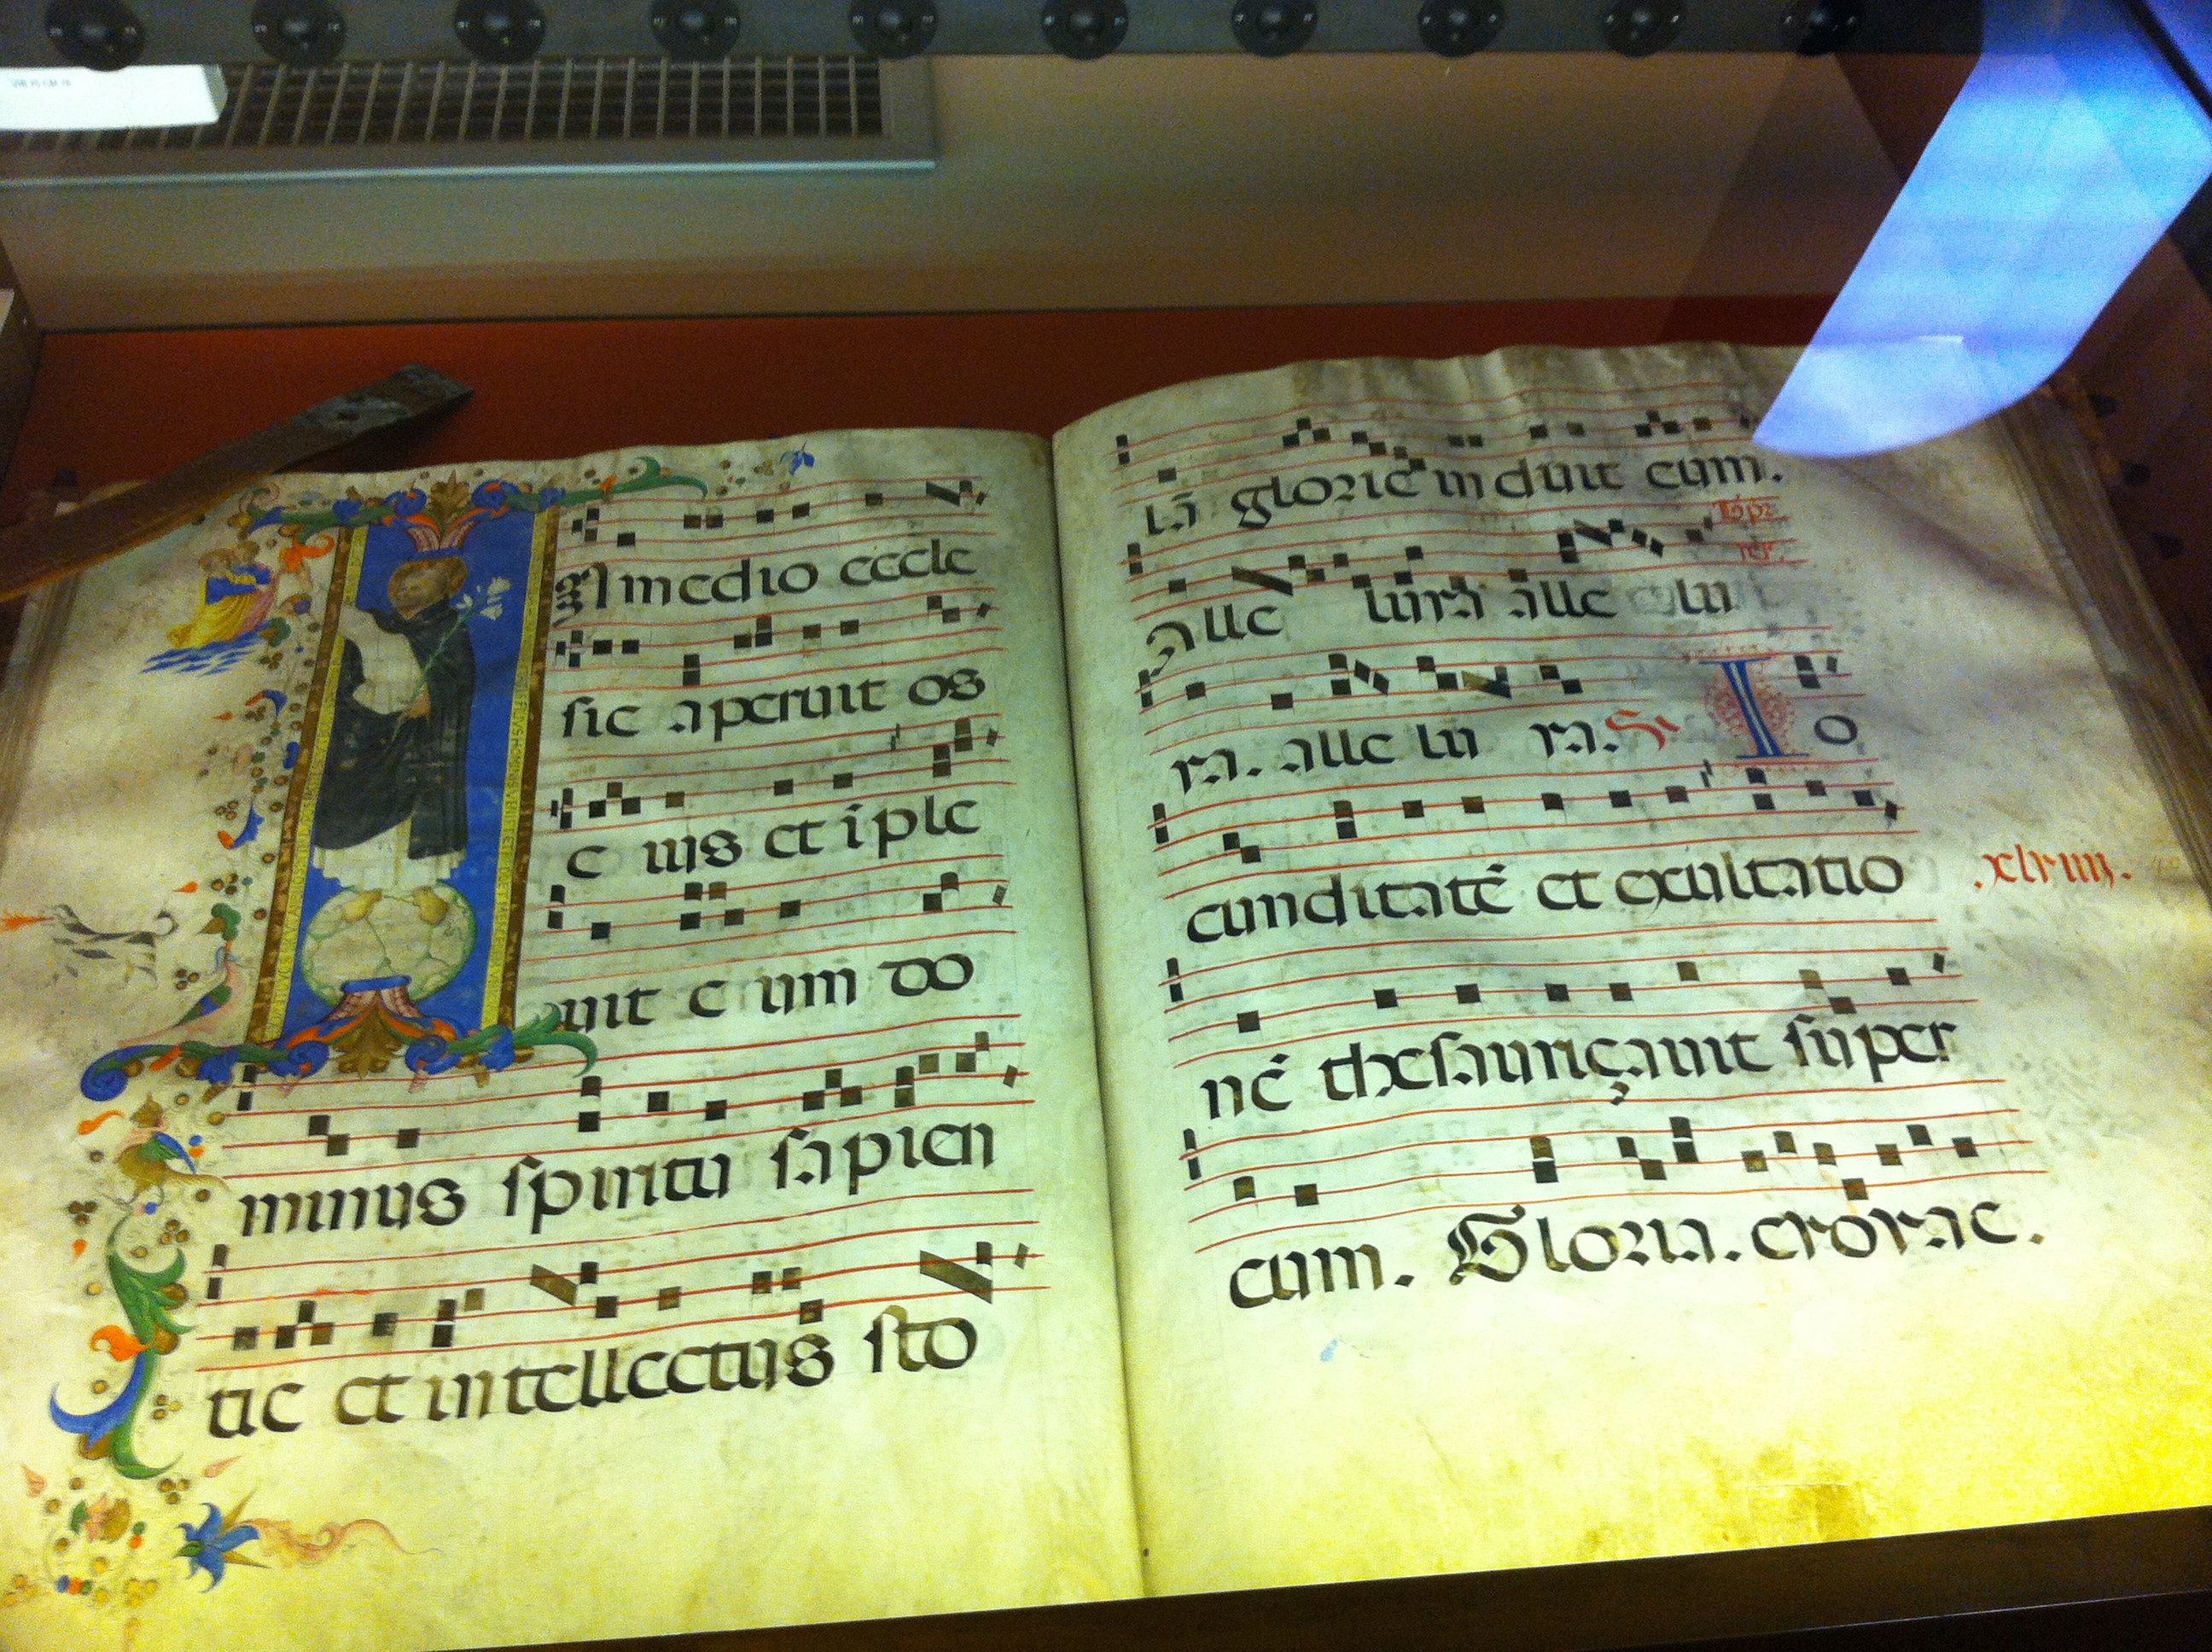 In medio eccle
sie aperuit os
e ius et iple
uit e um do
minus spiritu sapien
tie et intellectus sto
lā glorie induit eum.
Alle luya alle lu
ya. alle lu ya. Io
cunditatē et exultatio
nē thesauriçauit super
eum. Gloria. evovae.
.xlviiij.